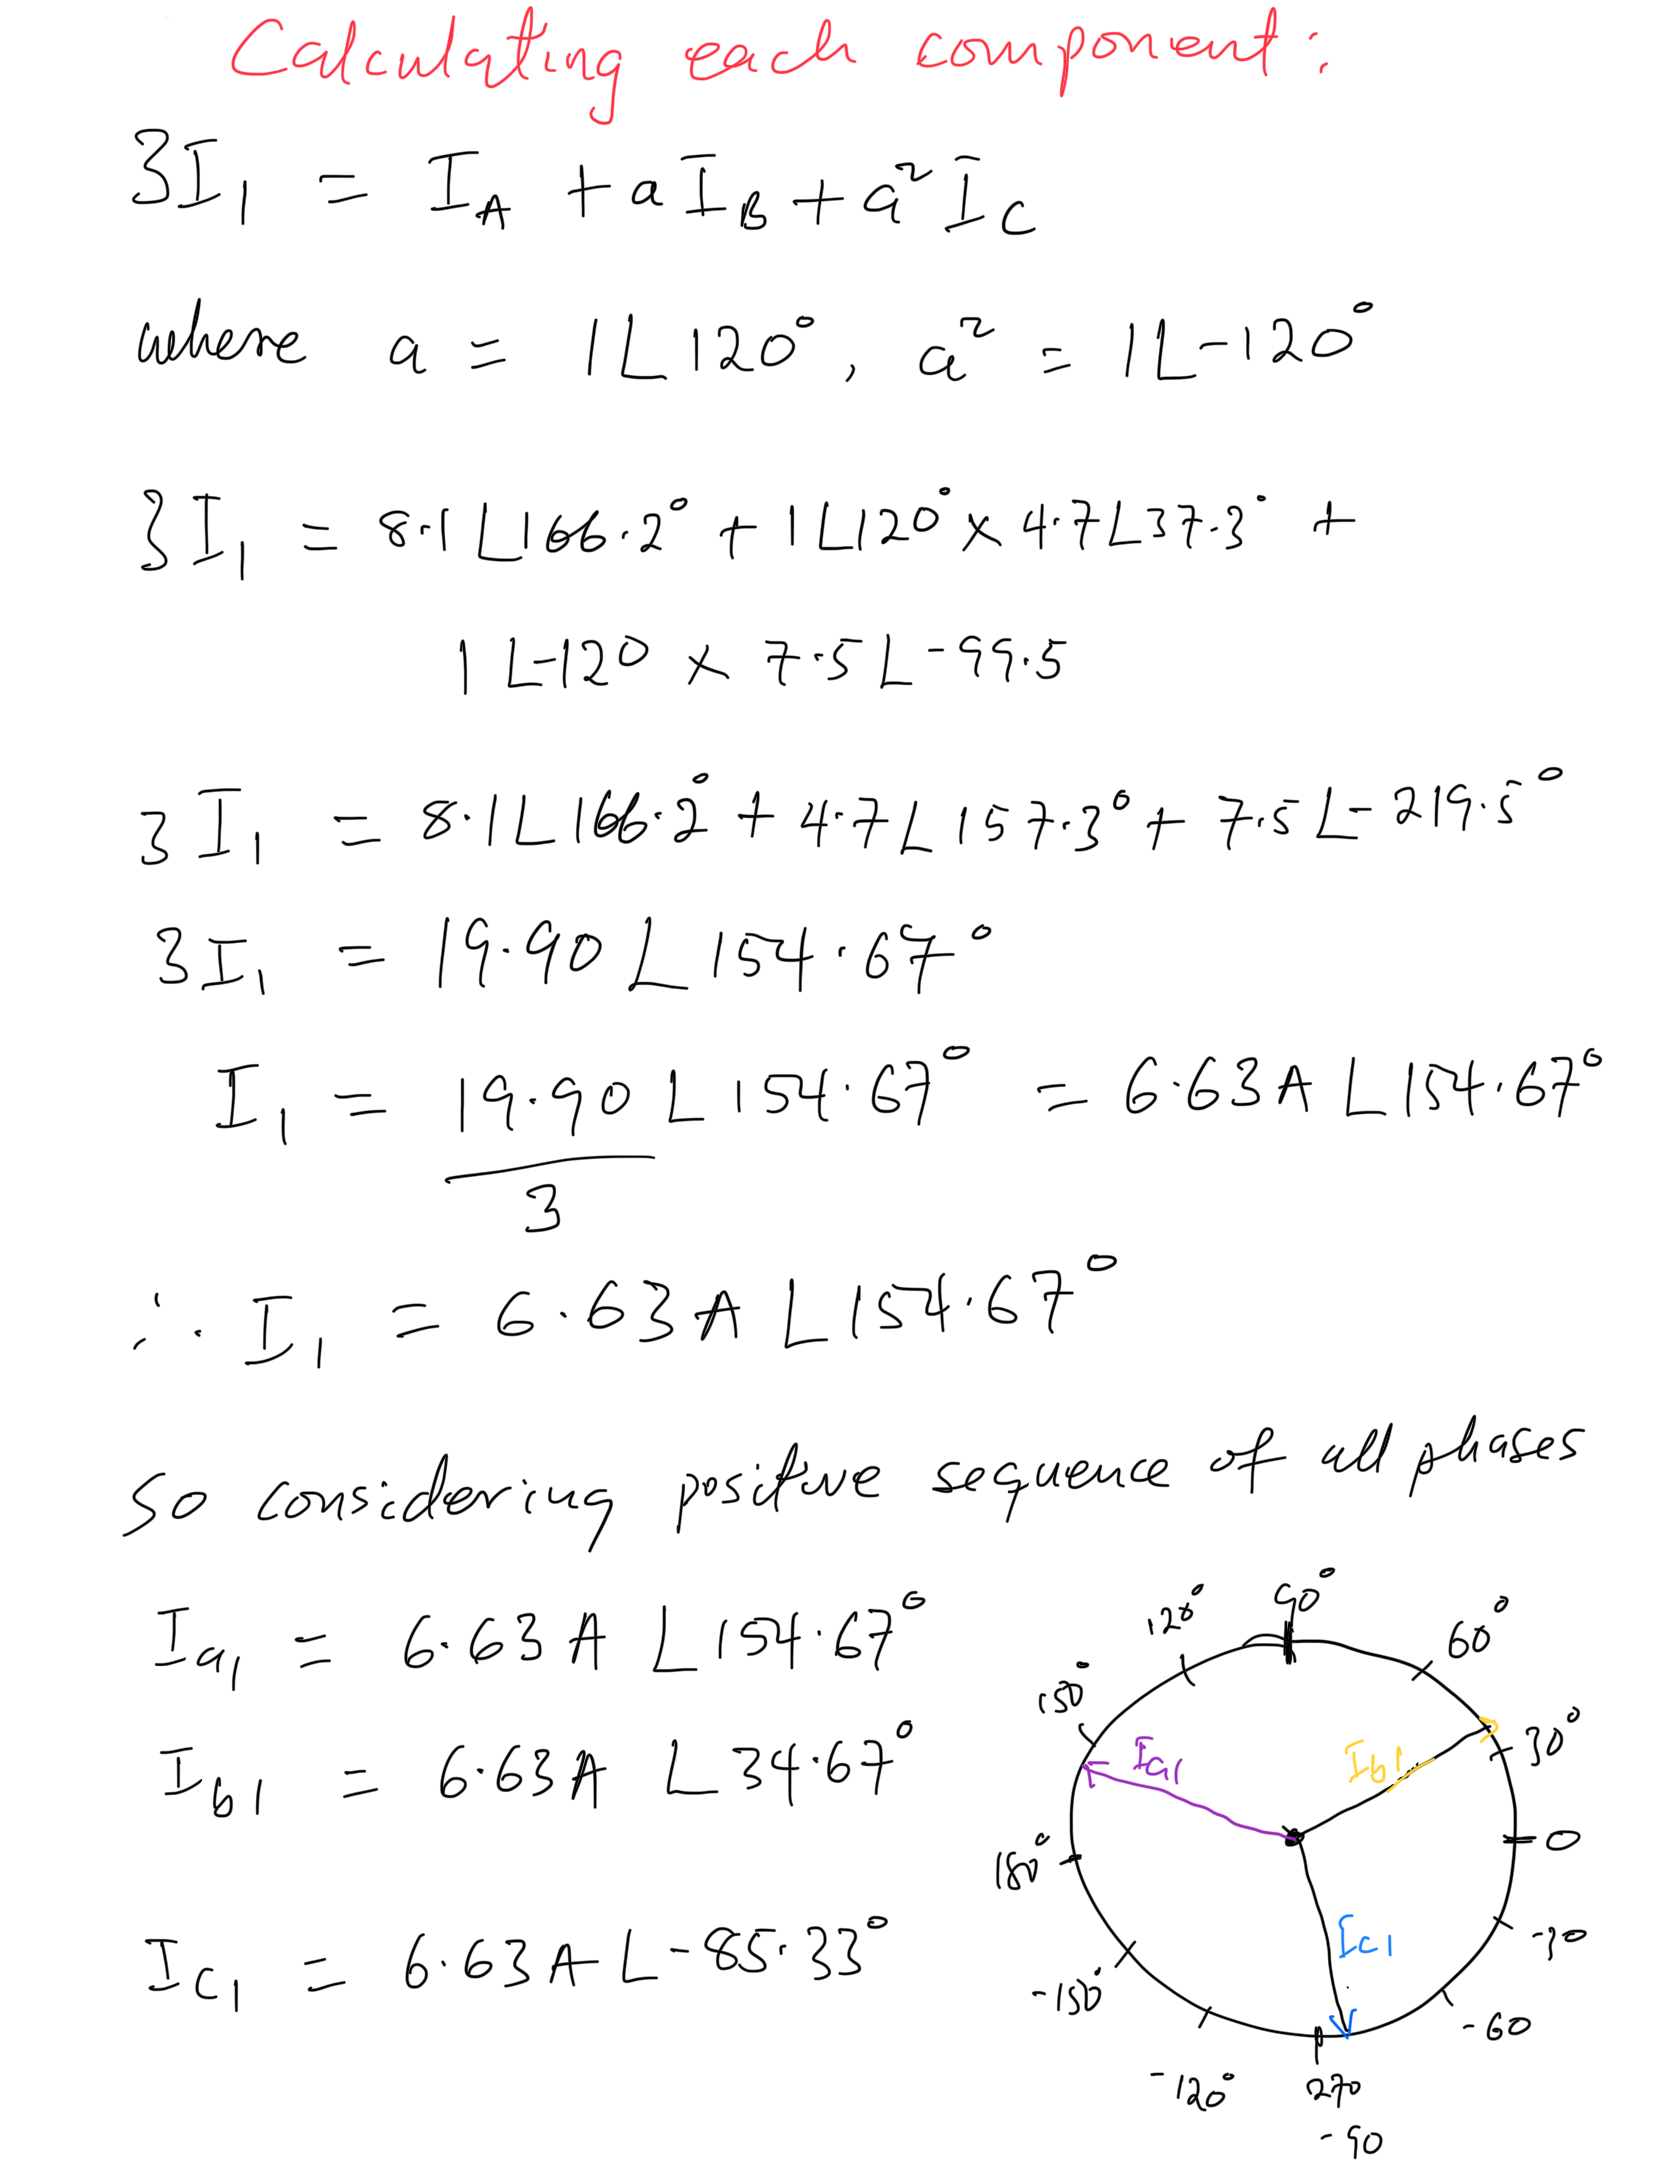 Calculating each component:
3I₁ = I_A + aI_B + a²I_C
where a = 1∠120°, a² = 1∠-120°
3I₁ = 8.1∠166.2° + 1∠120° × 4.7∠37.3° +
1∠-120 × 7.5∠-99.5
3I₁ = 8.1∠166.2° + 4.7∠157.3° + 7.5∠-219.5°
3I₁ = 19.90∠154.67°
I₁ = 19.90∠154.67° = 6.63A∠154.67°
3
∴ I₁ = 6.63A∠154.67°
So considering positive sequence of all phases
I_a1 = 6.63A∠154.67°
I_b1 = 6.63A∠34.67°
I_c1 = 6.63A∠-85.33°
90°
120°
60°
150°
30°
I_a1
I_b1
180°
0
I_c1
-30
-150°
-60
-120°
270
-90